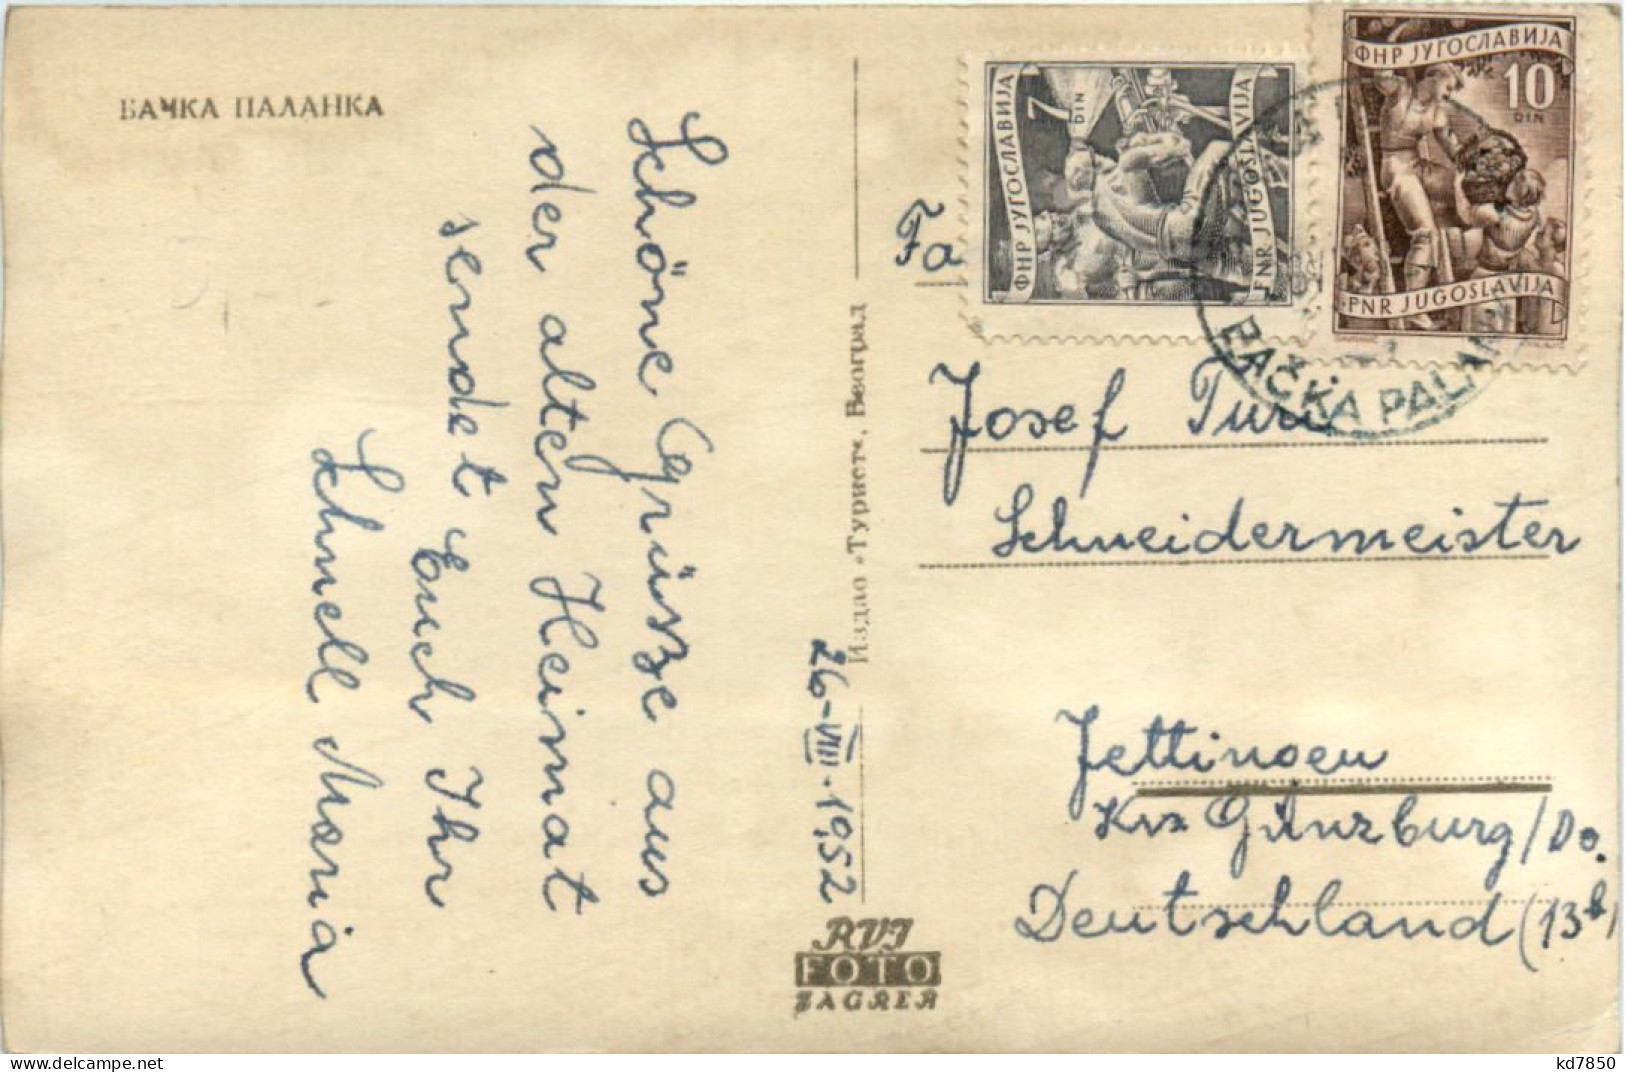 БАЧКА ПАЛАНКА
Schöne Grüsze aus
der alten Heimat
sendet Euch Ihr
Schnell Maria
26-VIII.1952
Издао „Турист“, Београд
RVI
FOTO
ZAGREB
ФНР ЈУГОСЛАВИЈА
7
DIN
FNR JUGOSLAVIJA
ФНР ЈУГОСЛАВИЈА
10
DIN
FNR JUGOSLAVIJA
BAČKA PALANKA
Fa
Josef Turi
Schneidermeister
Jettingen
Krs Günzburg/Do.
Deutschland (13b)
delcampe.net
kd7850